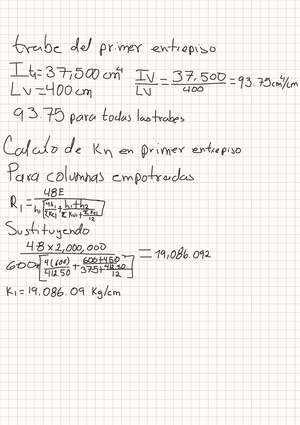 trabe del primer entrepiso
It=37,500 cm⁴ IV/LV = 37,500/400 = 93.75 cm⁴/cm
Lv=400 cm
93.75 para todas las trabes
Calculo de Kn en primer entrepiso
Para columnas empotradas
R₁ = 48E
Sustituyendo
48 x 2,000,000 / 600 [4(600)/412.50 + 600+450/375+412.50/12] = 19,086.092
K₁ = 19.086.09 Kg/cm